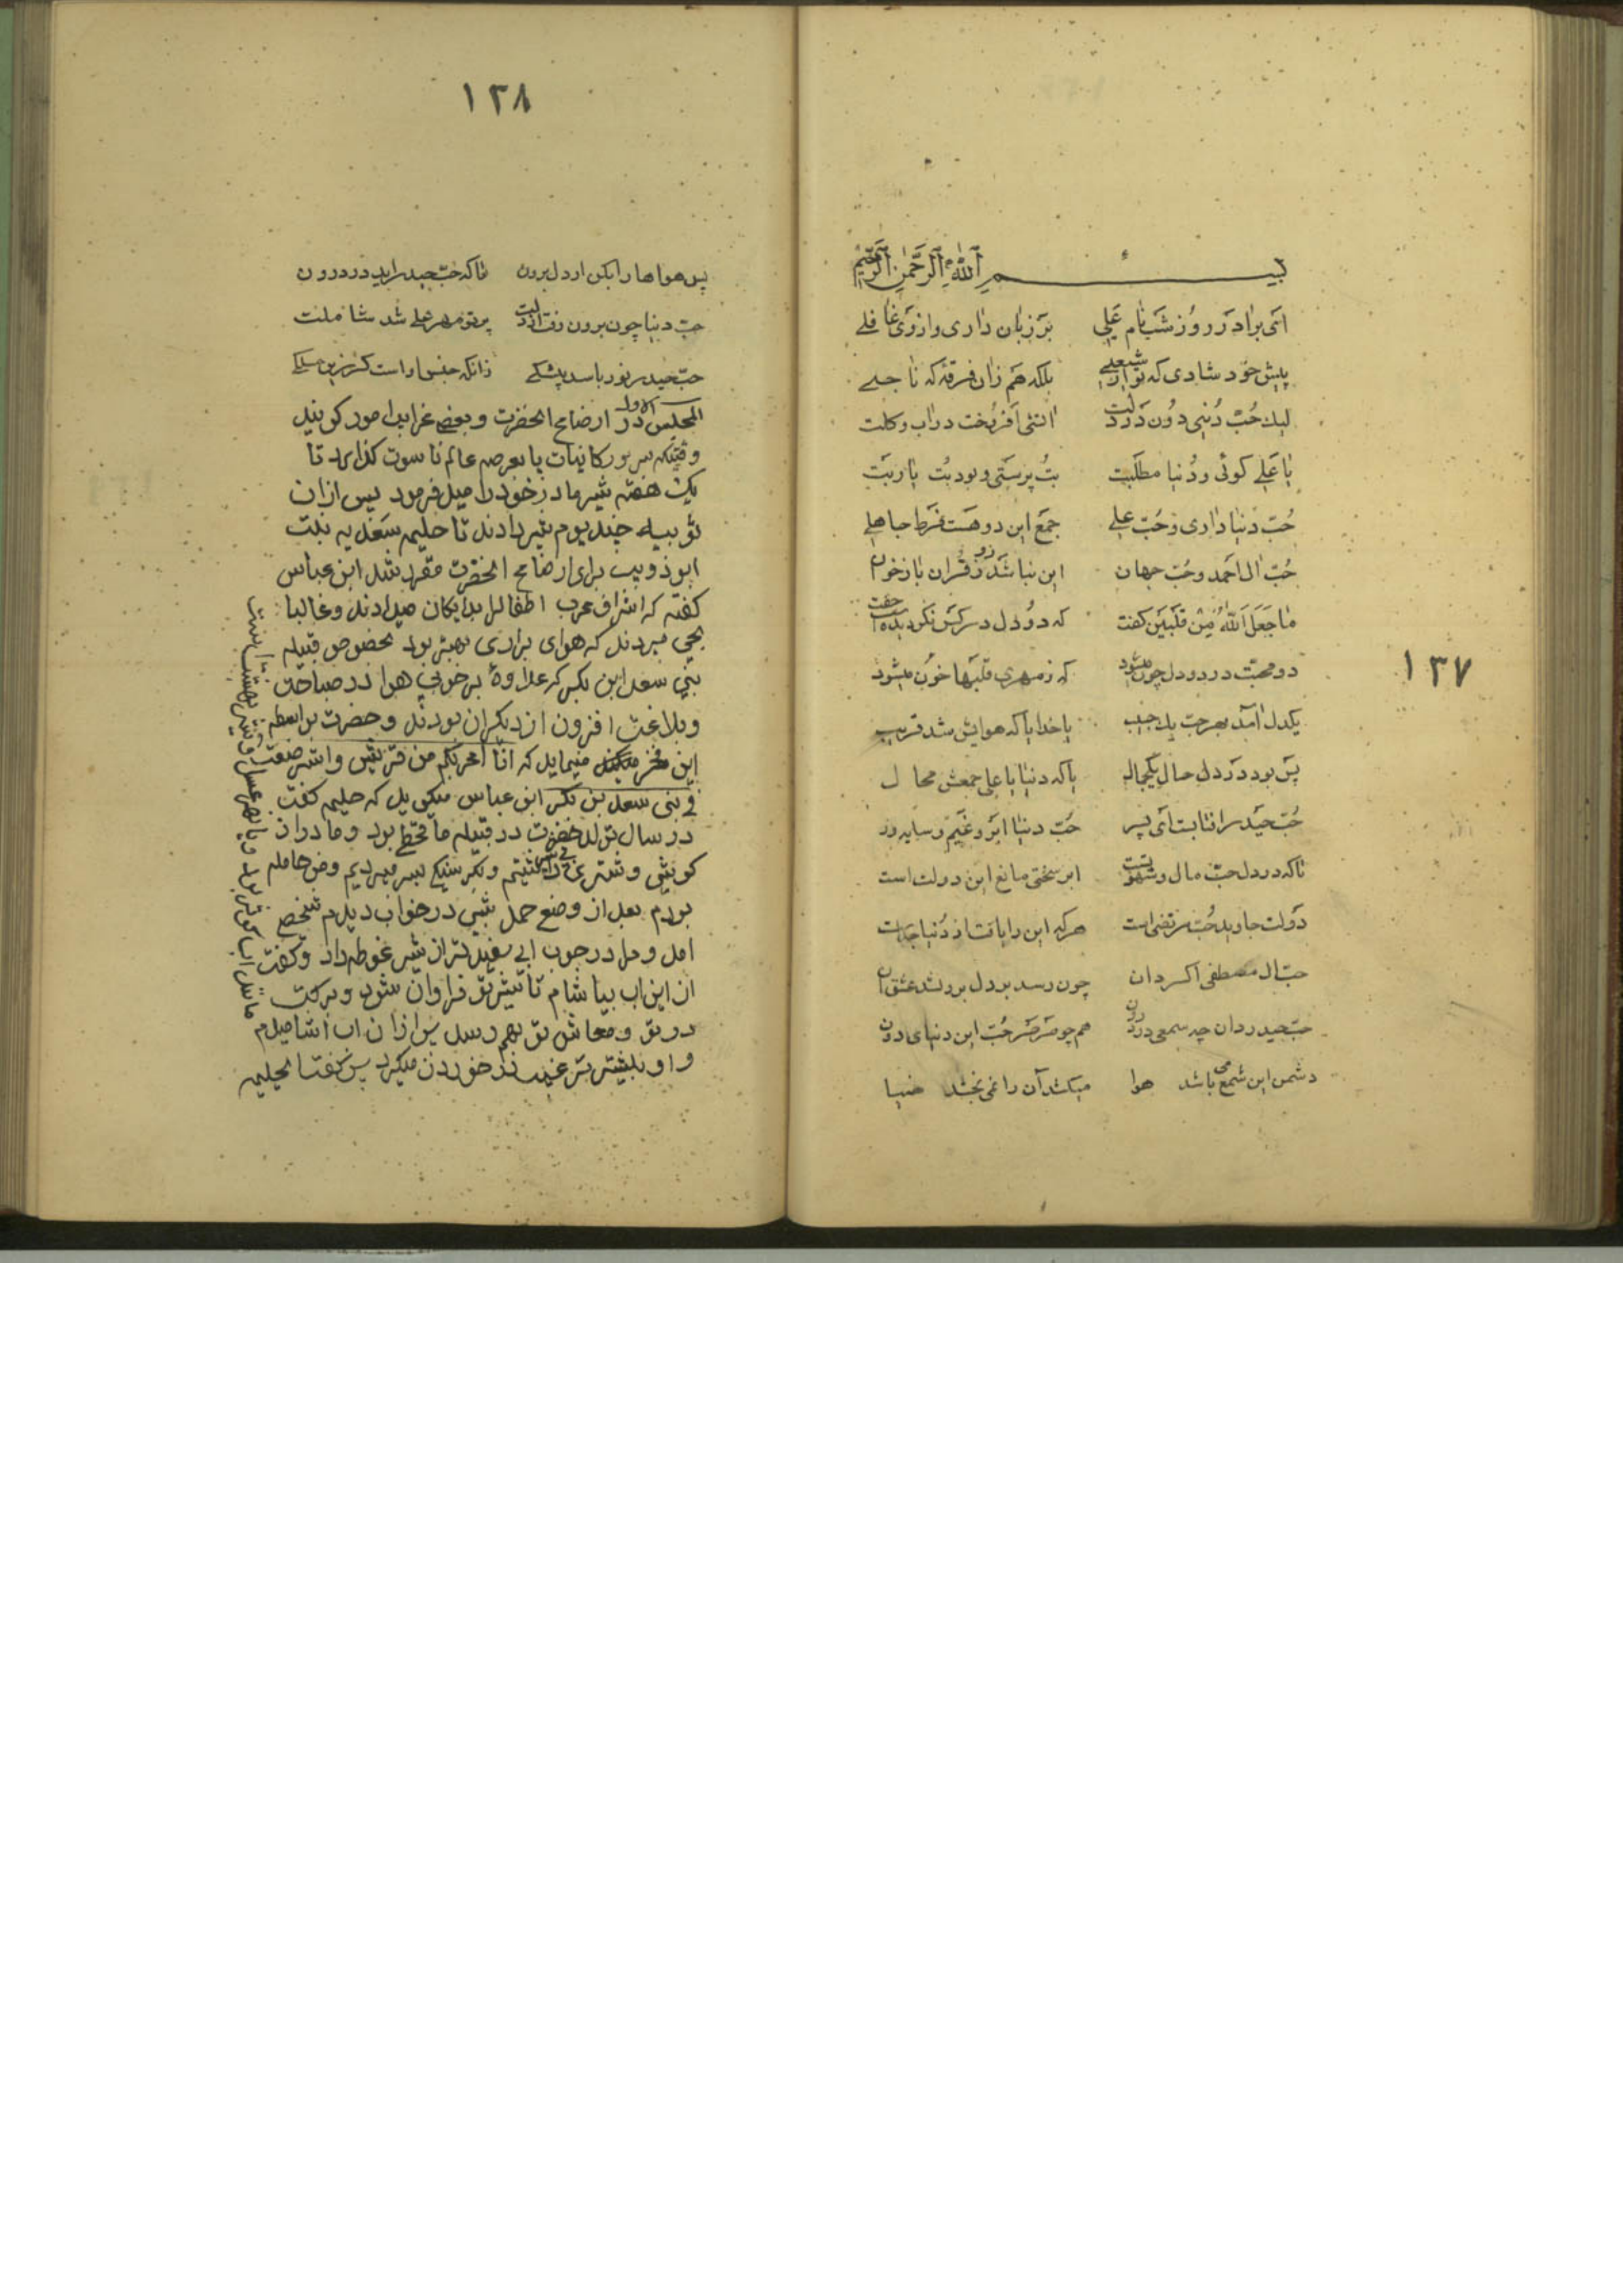 بسم الله الرحمن الرحیم
ای برادر روز شب نام علی بر زبان داری و از وی غافلے
پیش خود شادی که تو از شیعلے بلکه هم زان فرقهٔ که ناجے
لیك حُبّ دُنیی دُون در دلت اتشی افروخت در اب و کلت
با علے کوئی و دُنیا مطلبت بُت پرستی و بود بُت یا ربَت
حُبّ دُنیا داری و حُبّ علے جمع این دو هست فرط جاهلے
حُبّ ال احمد و حُبّ جهان این نباشد رو ز قران باز خوان
ما جَعَلَ اَللّٰهُ مِنْ قَلبَین کفت که دو دل در کس نکردیده
دو محبّت در دو دل چون میشود که ز مهری قلبها خون میشود
یکدل امد بهر حبّ یك حبیب یا خدا یا که هوایش شد قریب
پس بود در دل حال یکجا که دنیا با علی جمعش محال
حُبّ حیدر افتابست ای پسر حُبّ دنیا ابر و غیم و سایه ور
تاکه در دل حبّ مال و شهوتست ابر سختی مانع این دولت است
دَولت جاوید حُبّ مرتضی است هرکه این را یافت از دُنیا جداست
حبّ ال مصطفی اکسر دان چون رسد بر دل برد شد عشق ان
حبّ حیدر دان چه سمعی در درون هم چو صَرصَر حُبّ این دنیای دون
دشمن این شمع می باشد هوا میکشد آن را نمی بخشد ضیا
۱۳۷
۱۳۸
پس هواها را بکن از دل برون تا که حبّ حیدر اید در درون
حبّ دنیا چون برون رفت از دلت پرتو مهر علے شد شاملت
حبّ حیدر نور باسد بیشکے زانکه جنس او است
المجلس الاول در ارضاع الحضرت و بعضے غرایب امور کویند
وقتیکه سرور کاینات با بعرصه عالم ناسوت کذارد تا
یک هفته شیر مادر خود را میل فرمود پس ازان
ثوبیه چند یوم شیر دادند تا حلیمه سعدیه بنت
ابو ذویب برای ارضاع الحضرت مقرر شد ابن عباس
کفته که اشراف عرب اطفال را بدایکان میدادند و غالبا
بجی میبردند که هوای براری بهتر بود بخصوص قبیله
بنی سعد ابن بکر که علاوهٔ بر خوبی هوا در صباحت
و بلاغت افزون از دیکران بودند و حضرت بواسطه
این فخر میفرماید که انا اعربکم من قریش و استرضعت
فی بنی سعد بن بکر ابن عباس میکوید که حلیمه کفت
در سال تولد حضرت در قبیله ما قحط بود و ما دران
کوشی و شتری داشتیم و بکرسنکی بسر میبردیم و من حامله
بودم بعد از وضع حمل شبی در خواب دیدم شخصے
امد و مرا در جوب ابی سفیدتر از شیر غوطه داد و کفت
ازین اب بیاشام تا شیر تو فراوان شود و برکت
در تو و معاش تو بهم رسد پس ازان اب اشامیدم
و او بیشتر ترغیب در خوردن میکرد پس کفت ای حلیمه